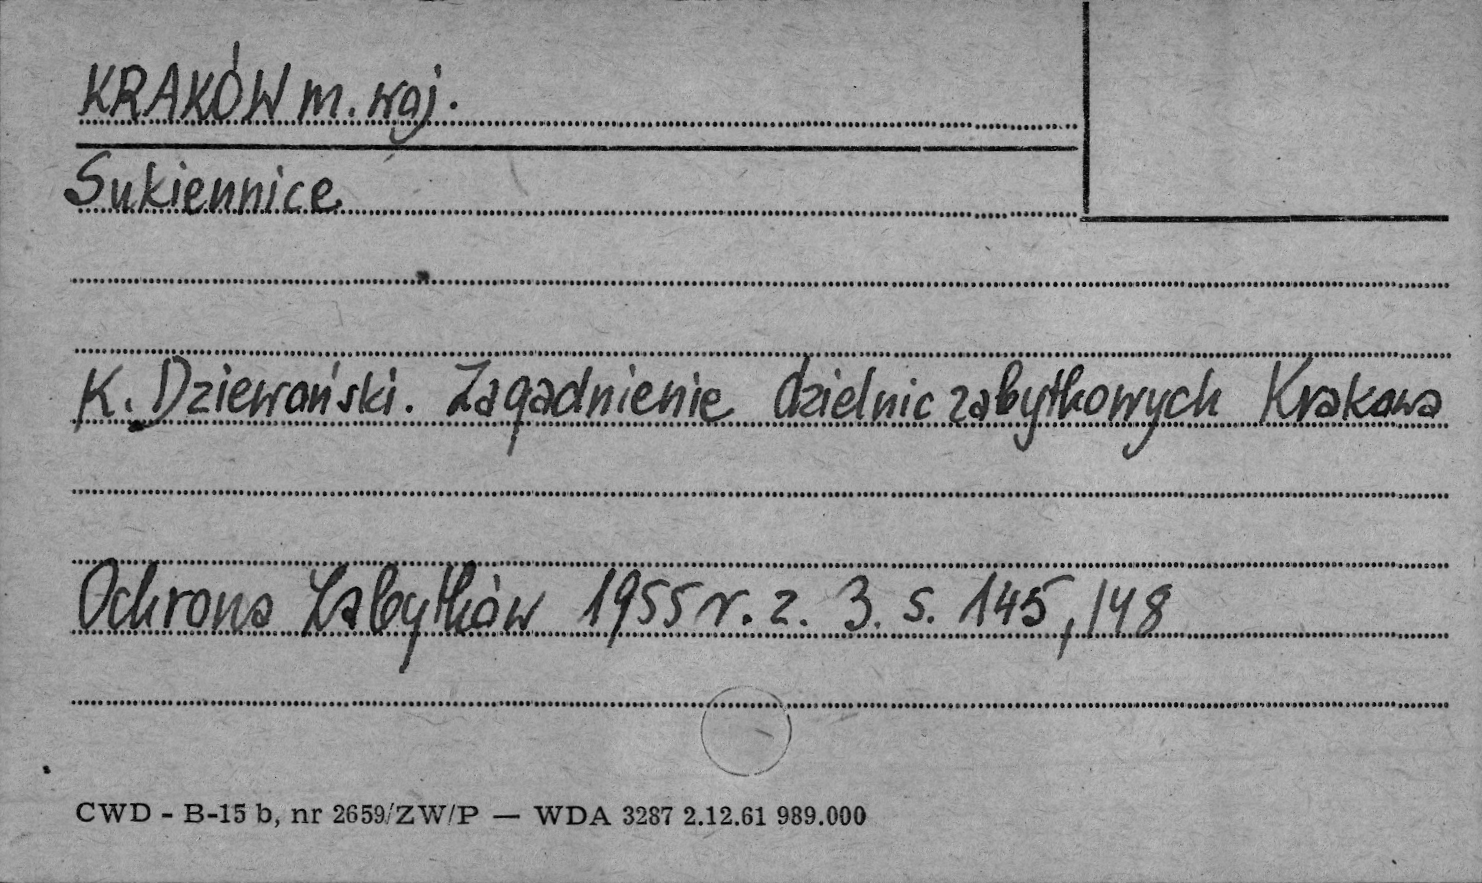 KRAKÓW m. woj.
Sukiennice
K. Dziewański. Zagadnienie dzielnic zabytkowych Krakowa
Ochrona Zabytków 1955 r. z. 3. s. 145, 148
CWD - B-15 b, nr 2659/ZW/P — WDA 3287 2.12.61 989.000